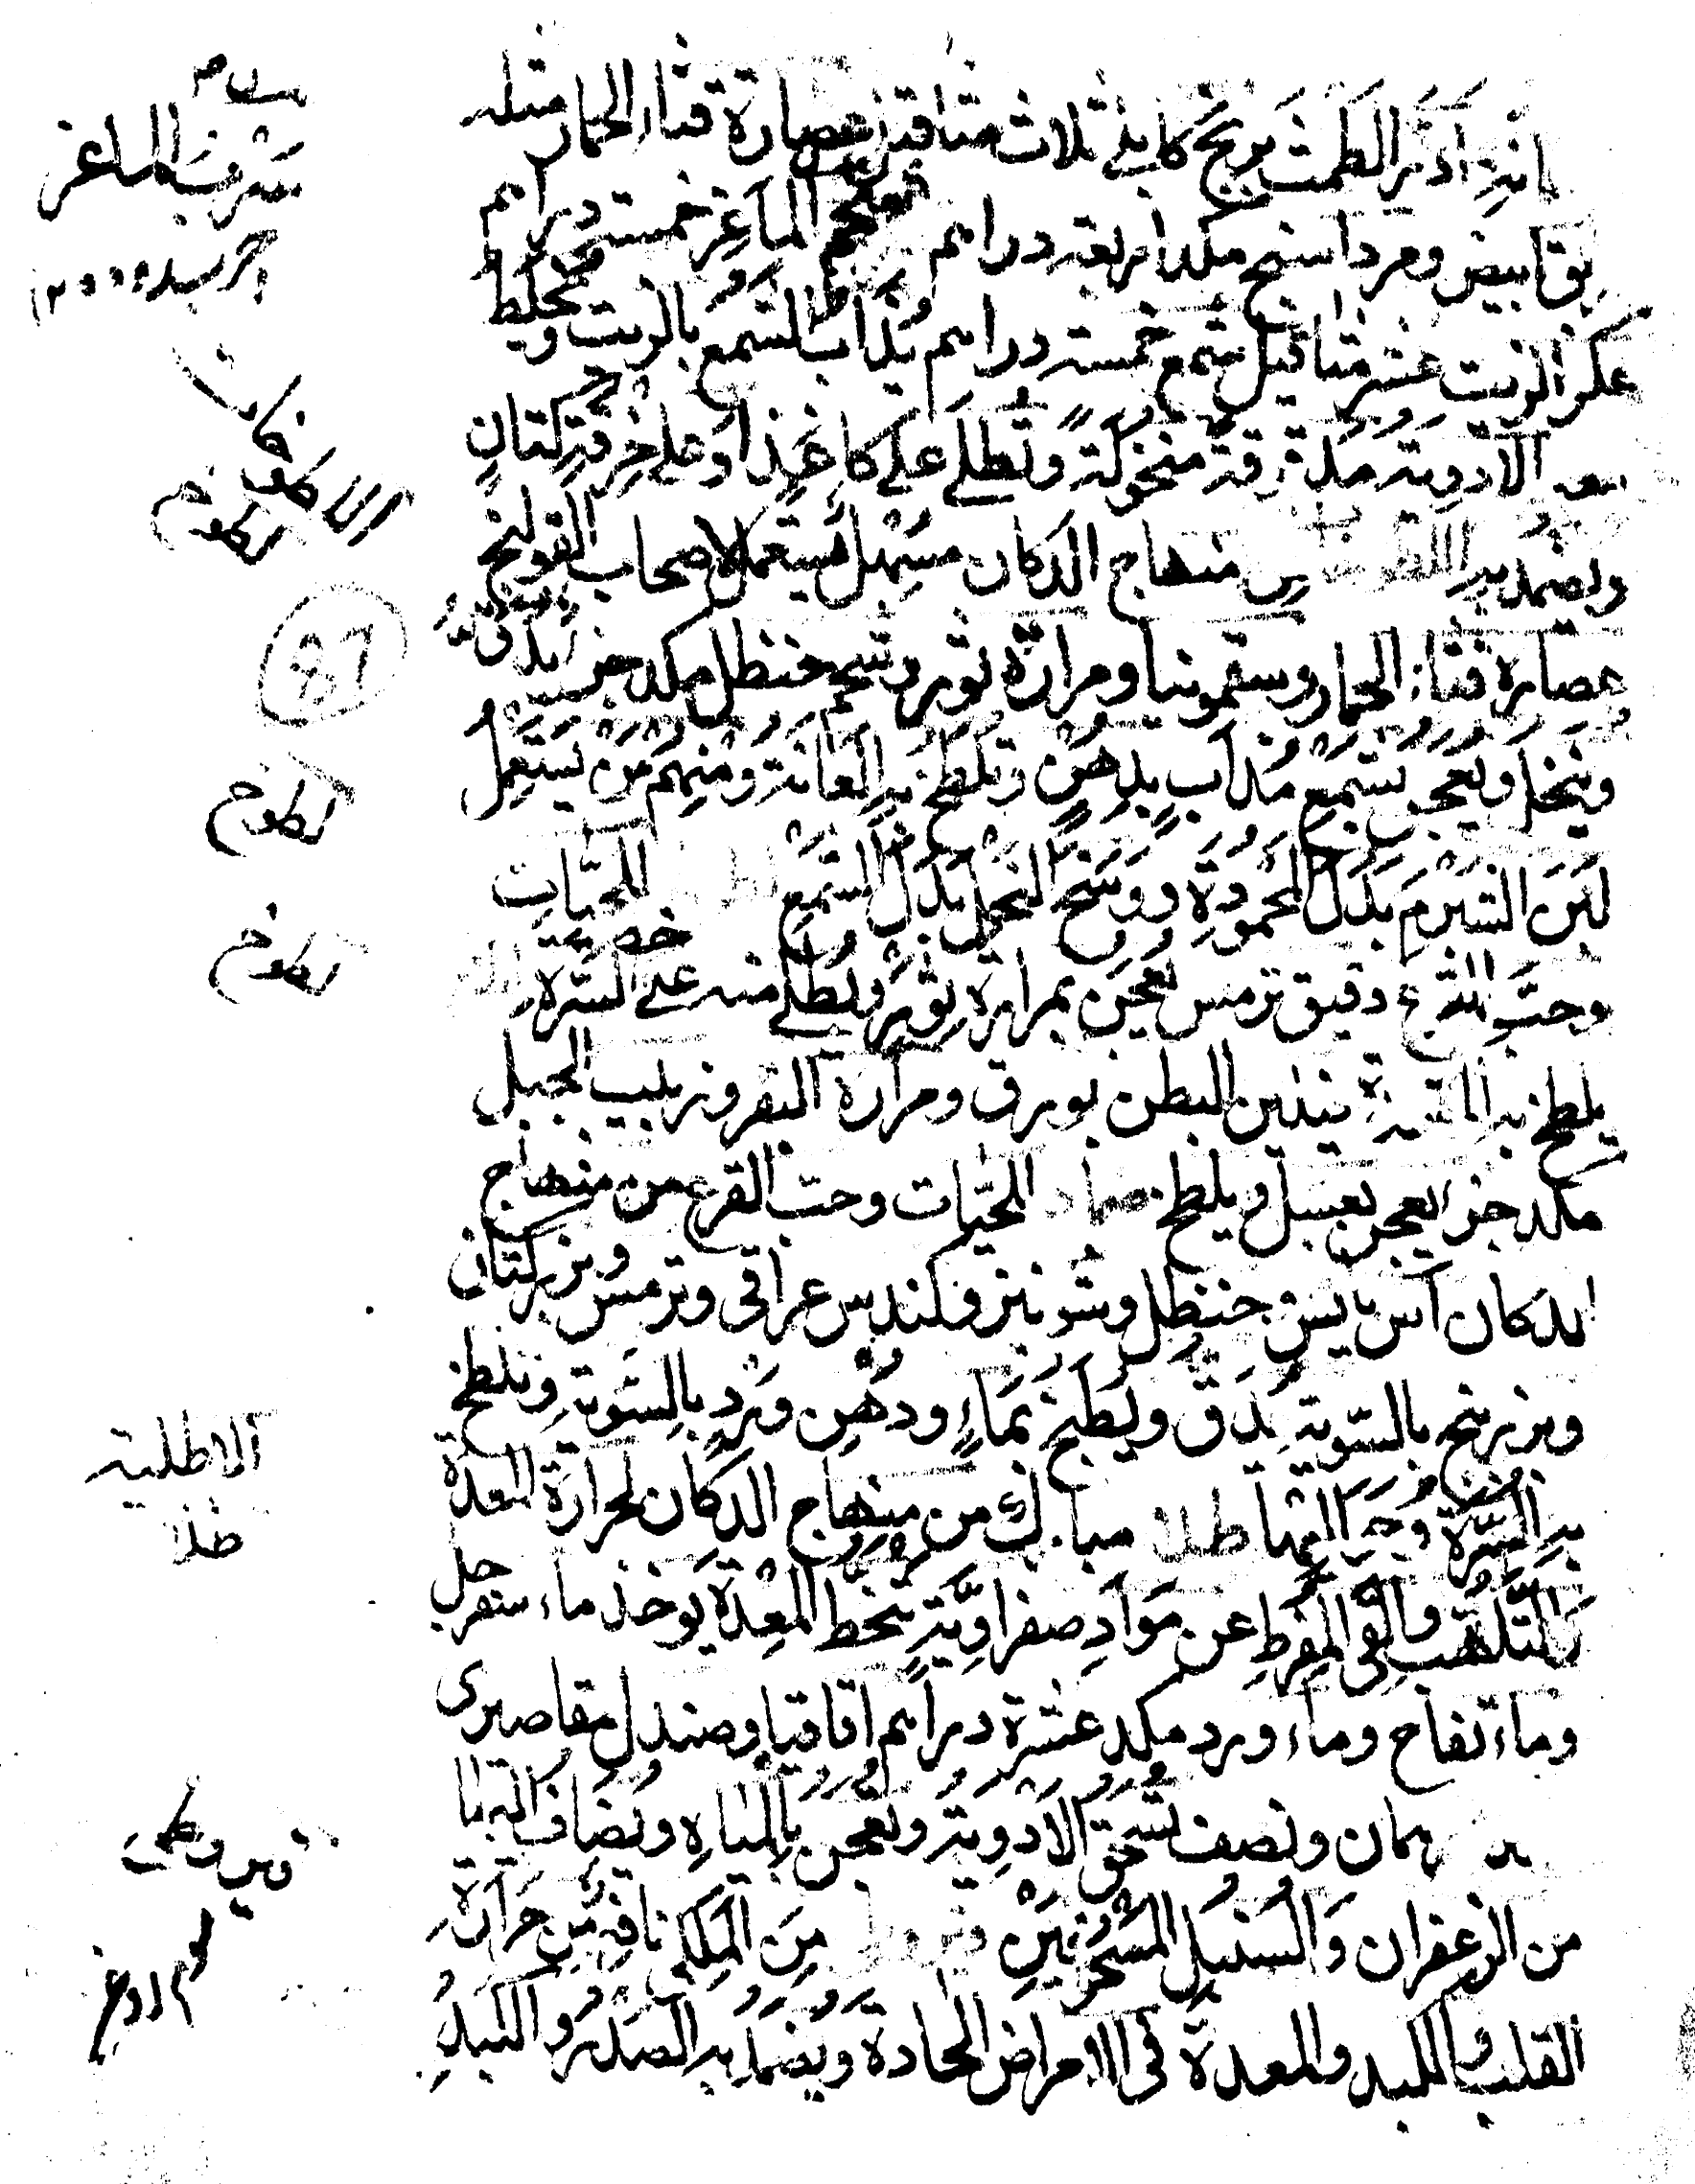 ادر الطمث برنج كابلى ثلاث مثاقيل عصارة قثاء الحمار مثله
بق ابيض ومرداسنج مكد اربعه دراهم شحم الماعز خمسة دراهم
عكر الزيت عشر مثاقيل شمع خمسة دراهم يُذاب الشمع بالزيت ويخلط
الادوية مدقوقة منخولة وتطلى على كاغذ او على خرقة كتان
ويضمد به من منهاج الدكان مسهل يستعمل لاصحاب القولنج
عصارة قثاء الحمار وسقمونيا ومرارة ثور وشحم حنظل مكد جز يدق
وينخل ويعجن بشمع مُذاب بدهن وتلطخ به العانة ومنهم من يستعمل
لبن الشبرم بدل المحمودة ووسخ النحل بدل الشمع للحيات
وحب القرع دقيق ترمس يعجن بمرارة ثور ويطلى منه على السرة
يلطخ به يلين البطن بورق ومرارة البقر وزبيب الجبل
مكد جز يعجن بعسل ويلطخ ضماد للحيات وحب القرع من منهاج
الدكان آس يابس وحنظل وشونيز وكندس عراقى وترمس وبزر كتان
وبزر بنج بالسوية يُدق ويطبخ بماء ودهن ورد بالسوية ويلطخ
به السرة وحواليها طلا مبارك من منهاج الدكان لحرارة المعدة
والتلهب والقى المفرط عن مواد صفراوية بخط المعدة يوخذ ماء سفرجل
وماء تفاح وماء ورد مكد عشرة دراهم اقاقيا وصندل مقاصيرى
درهمان ونصف تسحق الادوية وتعجن بالمياه ويضاف اليها
من الزعفران والسنبل المسحوقين قيروطى من الملكى نافع من حرارة
القلب والكبد والمعدة فى الامراض الحادة ويضمد به الصدر والكبد
شحم الماعز
لطوخ
87
لطوخ
لطوخ
الاطلية
طلا
قيروطى